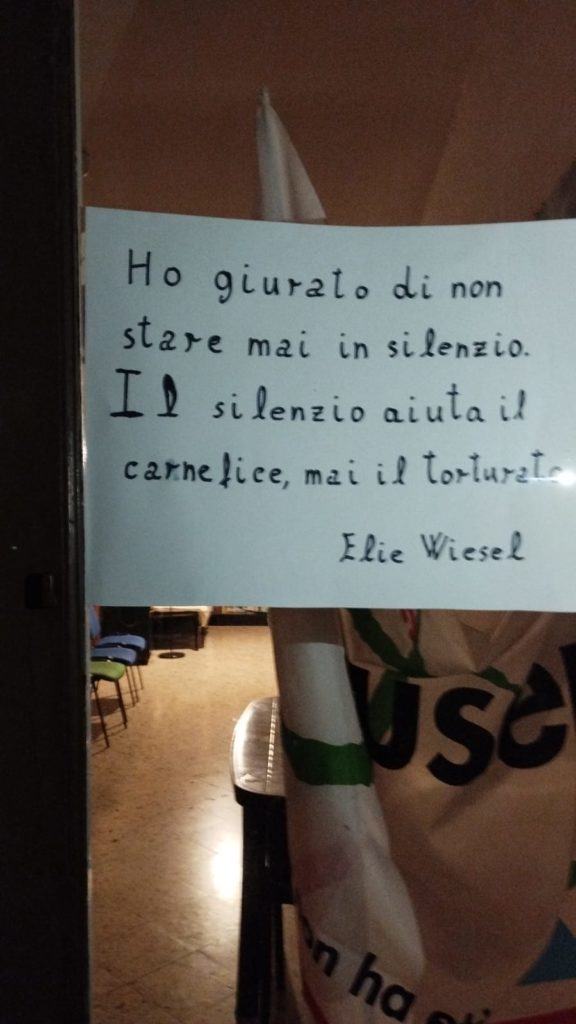 Ho giurato di non
stare mai in silenzio.
Il silenzio aiuta il
carnefice, mai il torturato
Elie Wiesel
use
on ha